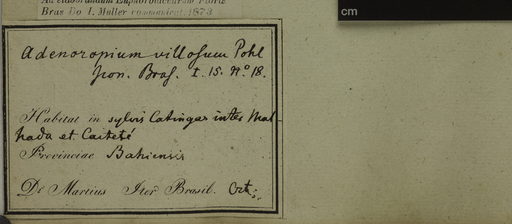 Ad elaborandum Euphorbiacearum Florae
Bras Dr J. Müller communicat. 1873
cm
Adenoropium villosum Pohl
pon. Bras. I. 15. No 18.
Habitat in sylvis Catingas inter Mal-
hada et Caiteté
Provinciae Bahiensis
De Martius Iter Brasil. Oct.